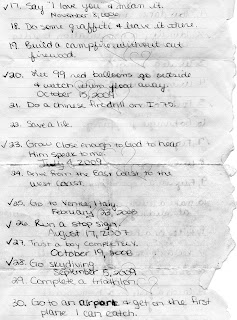 ✓17. Say "I love you" & mean it.
November 8, 2006
18. Do some graffiti & leave it alone.
19. Build a campfire without cut
firewood.
✓20. Let 99 red balloons go outside
& watch them float away.
October 15, 2009
21. Do a chinese firedrill on I-75.
22. Save a life.
✓23. Grow close enough to God to hear
Him speak to me.
2009
24. Drive from the East Coast to the
West Coast.
✓25. Go to Venice, Italy.
February 23, 2008
✓26. Run a stop sign.
August 17, 2007
✓27. Trust a boy completely.
October 19, 2008
✓28. Go skydiving
September 5, 2009
29. Complete a triathlon.
30. Go to an airport & get on the first
plane I can catch.